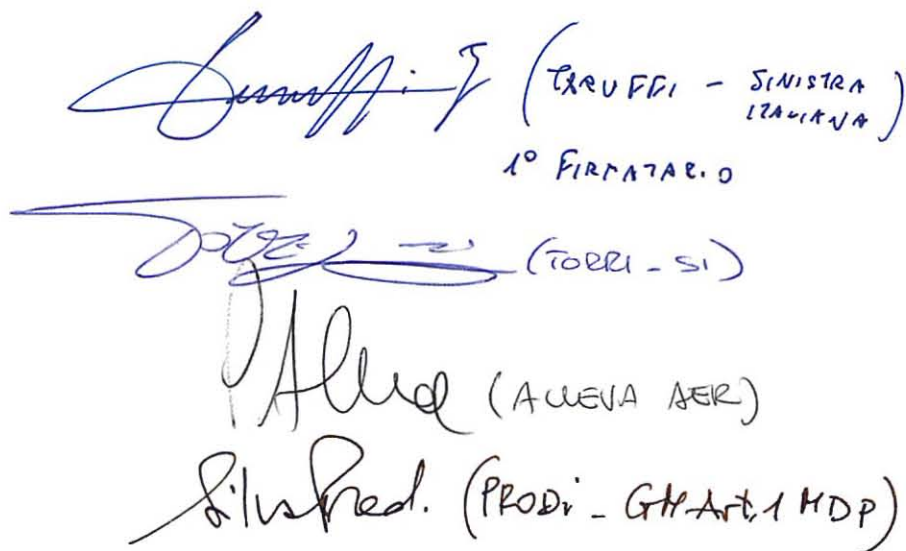 (TARUFFI - SINISTRA ITALIANA)
1º FIRMATARIO
(TORRI - SI)
(ALLEVA AER)
Silvia Prodi. (PRODI - GM Art. 1 MDP)